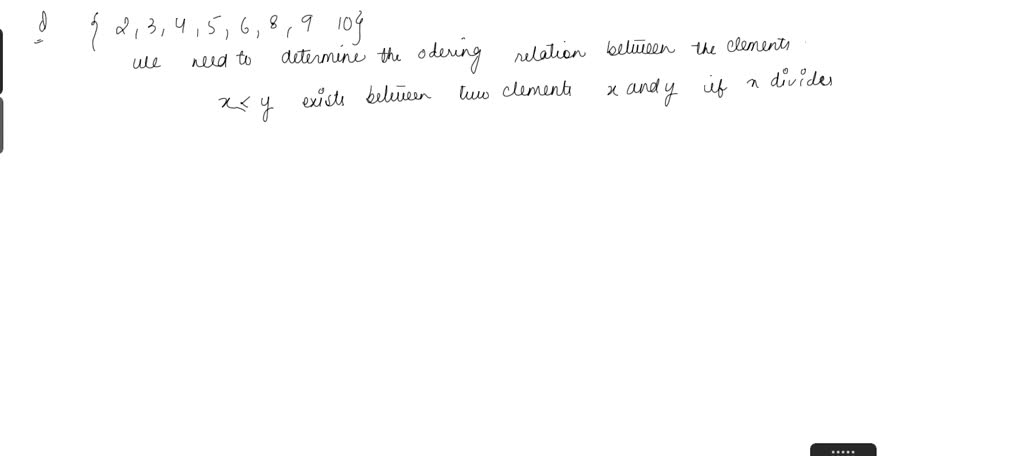 d { 2, 3, 4, 5, 6, 8, 9 10}
we need to determine the odering relation between the elements
x ≤ y exists between two elements x and y if x divides